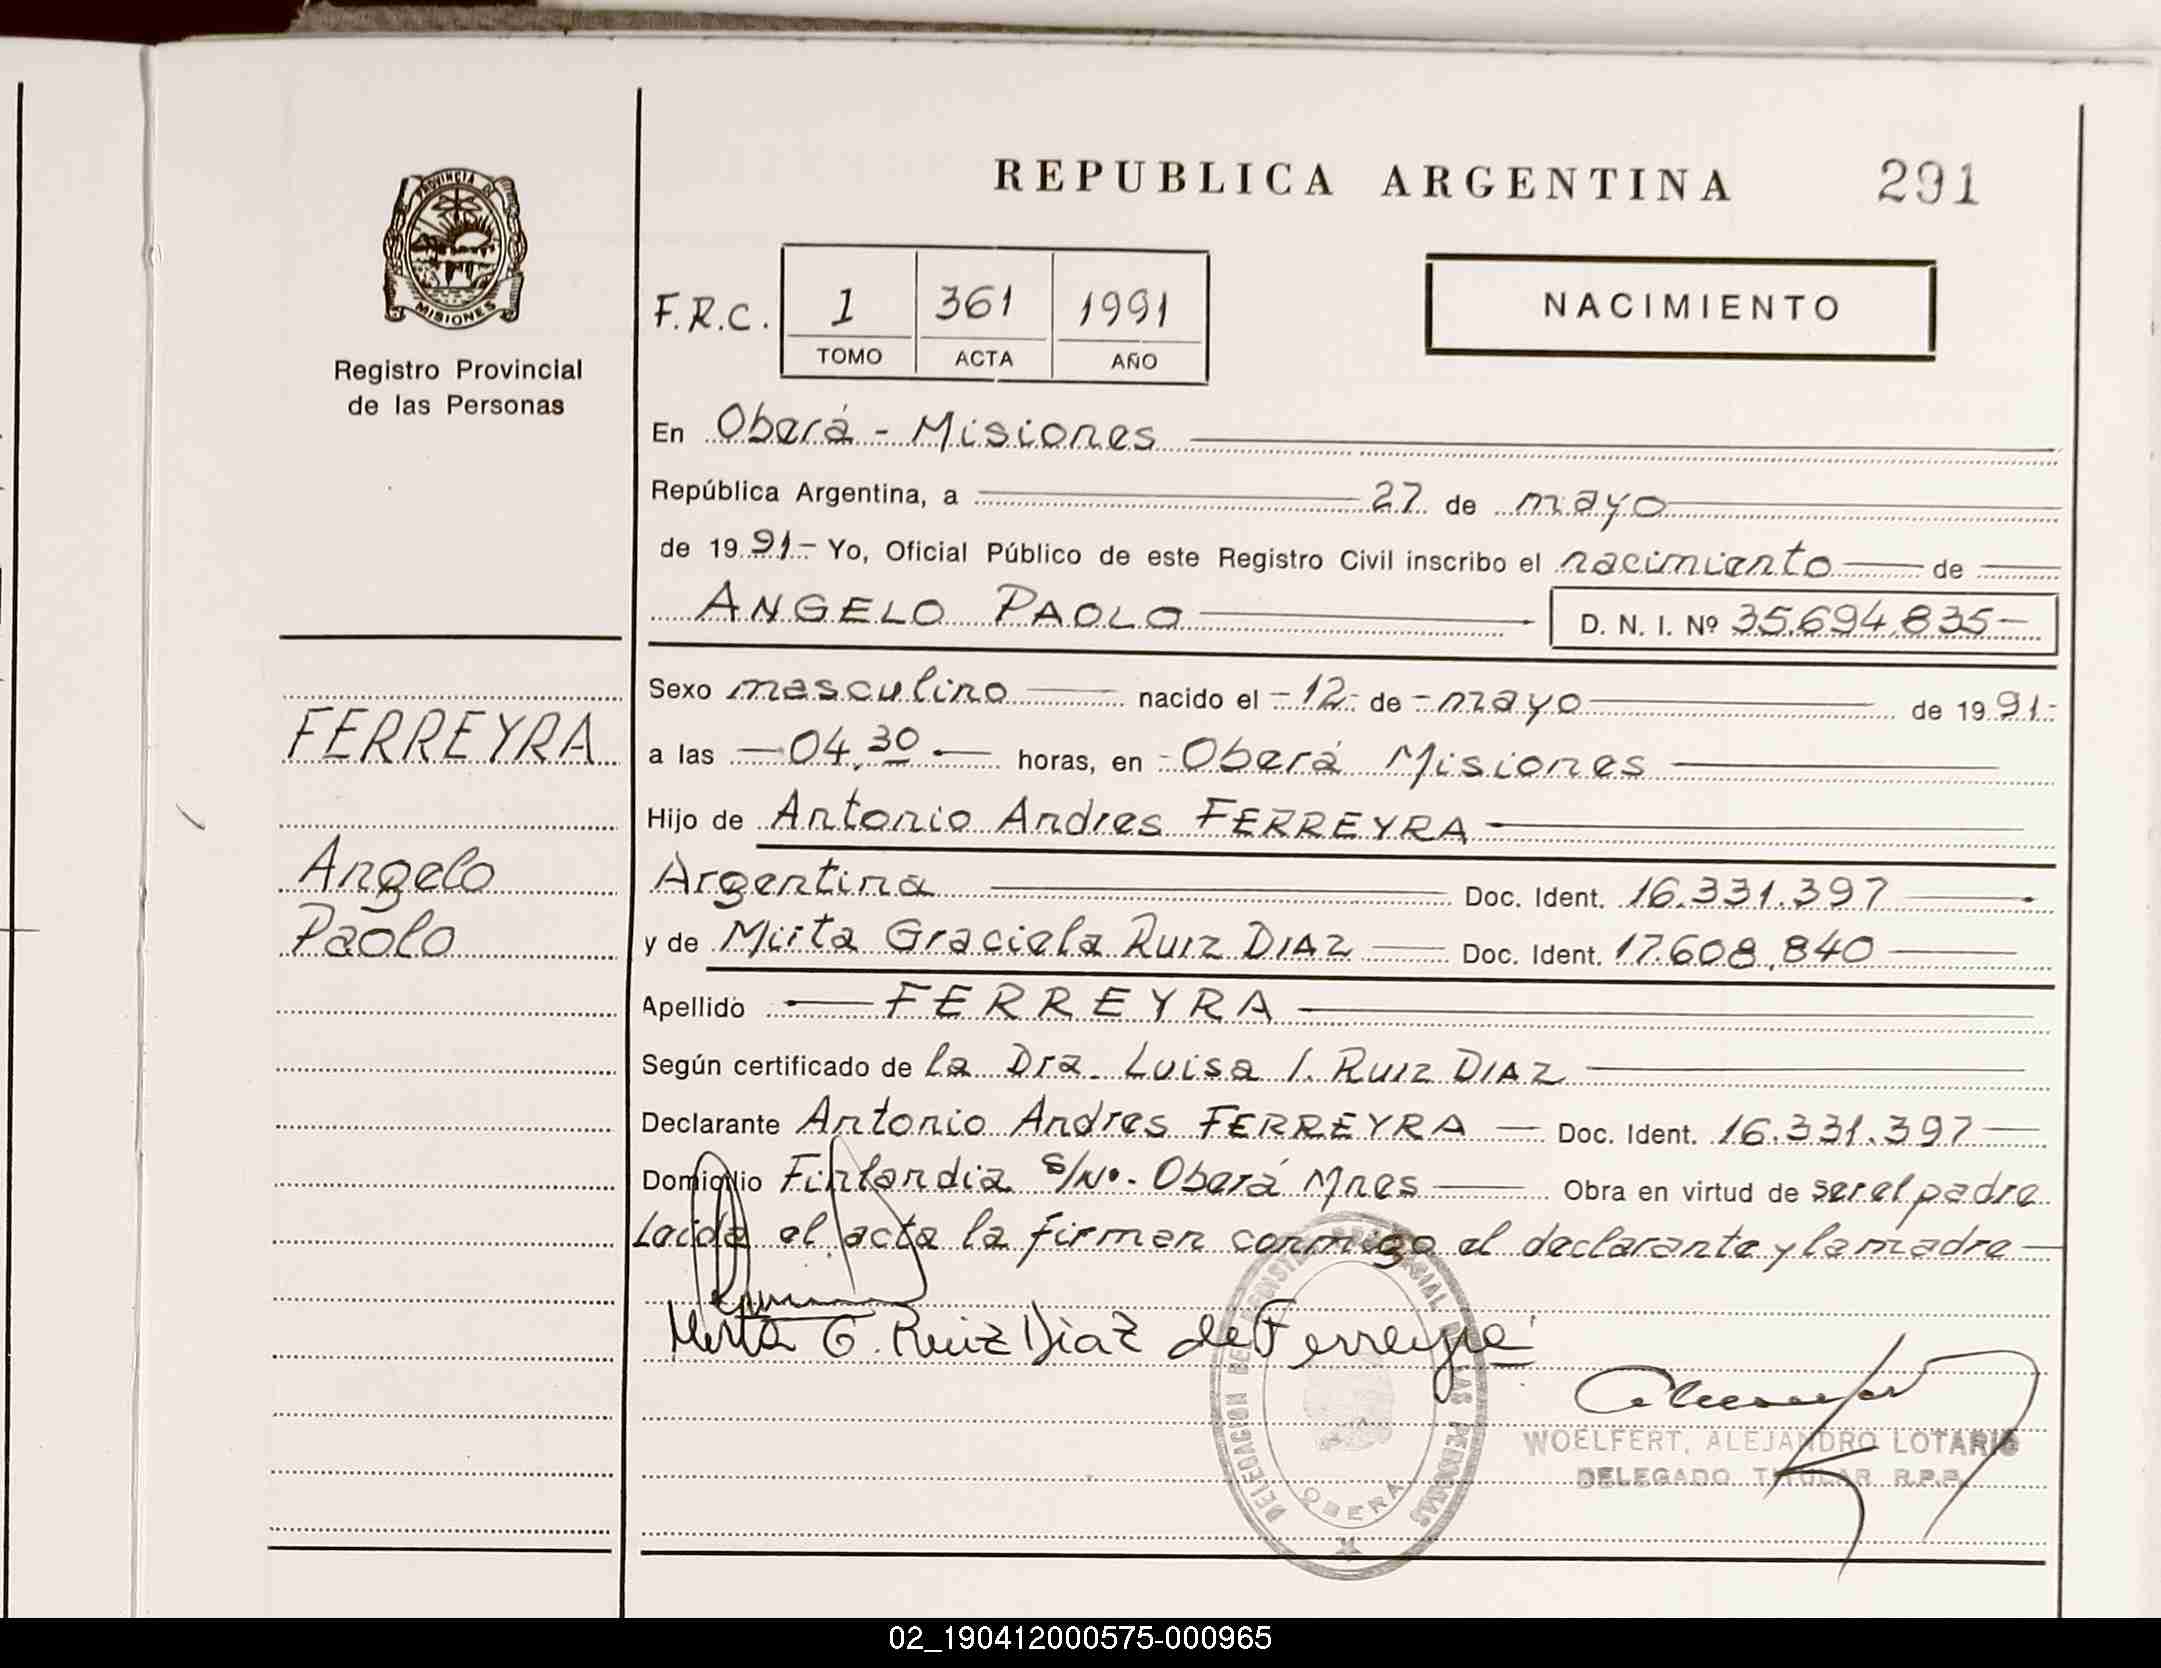 REPUBLICA ARGENTINA 291
PROVINCIA DE
MISIONES
Registro Provincial
de las Personas
F.R.C. 1 361 1991
TOMO ACTA AÑO
NACIMIENTO
En Oberá - Misiones
República Argentina, a 27 de mayo
de 1991- Yo, Oficial Público de este Registro Civil inscribo el nacimiento de
ANGELO PAOLO D. N. I. Nº 35.694.835-
FERREYRA
Angelo
Paolo
Sexo masculino nacido el -12- de -mayo de 1991-
a las 04,30 horas, en -Oberá Misiones
Hijo de Antonio Andres FERREYRA
Argentina Doc. Ident. 16.331.397
y de Mirta Graciela RUIZ DIAZ Doc. Ident. 17.608.840
Apellido FERREYRA
Según certificado de la Dra. Luisa I. RUIZ DIAZ
Declarante Antonio Andres FERREYRA Doc. Ident. 16.331.397
Domicilio Finlandia s/Nº. Oberá Mnes Obra en virtud de ser el padre
Leida el acta la firman conmigo el declarante y la madre
Mirta G. Ruiz Diaz de Ferreyra
DELEGACION DEL REGISTRO PROVINCIAL DE LAS PERSONAS
OBERA
WOELFERT, ALEJANDRO LOTARIO
DELEGADO TITULAR R.P.P.
02_190412000575-000965